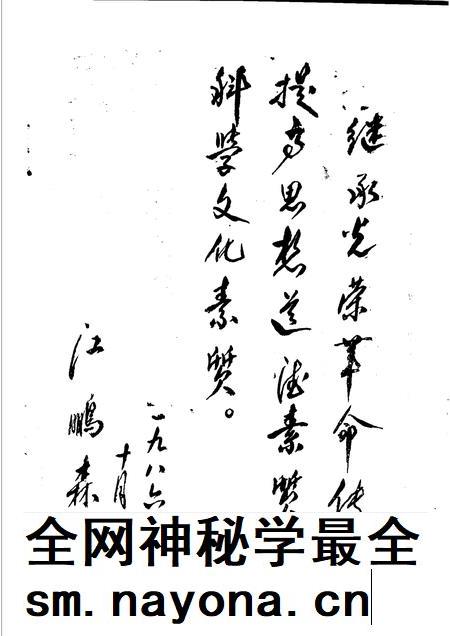 继承光荣革命传
提高思想道德素质
科学文化素质。
一九八六
十月
江鹏森
全网神秘学最全
sm.nayona.cn